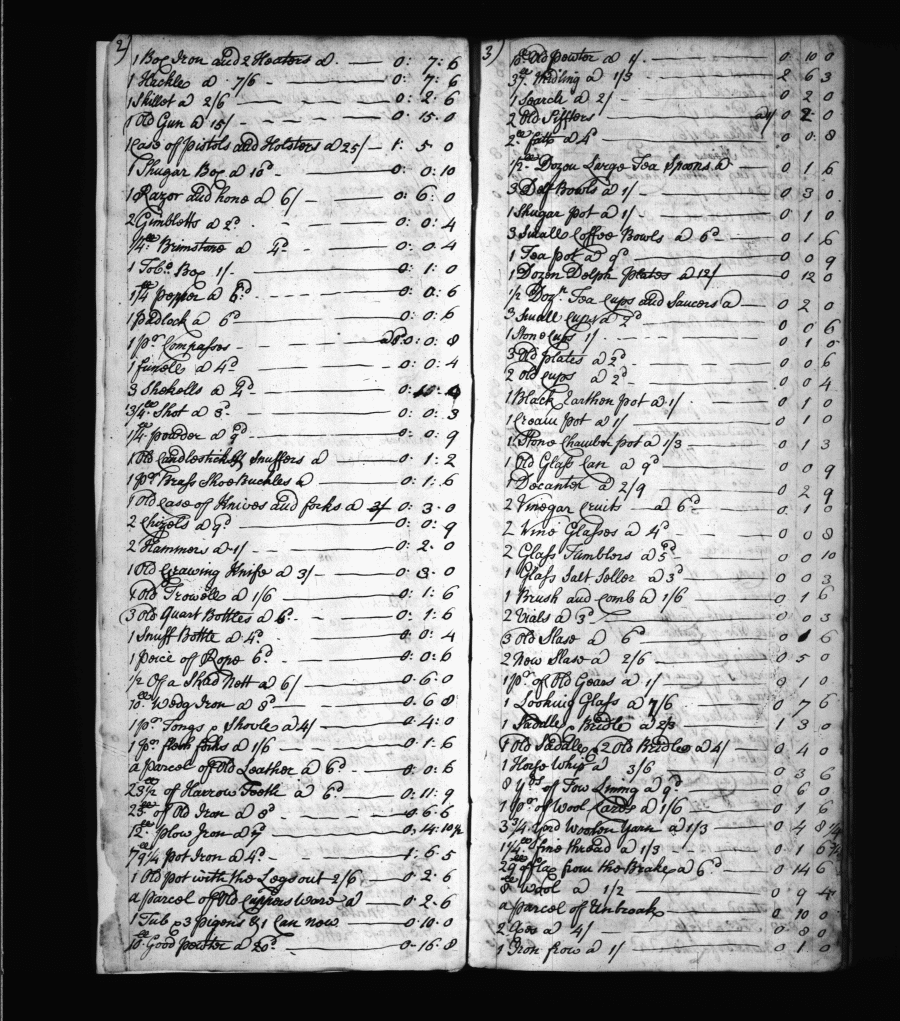 2)
1 Box Iron and 2 Heaters a 0: 7: 6
1 Hackle a 7/6 0: 7: 6
1 Skillet a 2/6 0: 2: 6
1 Old Gun a 15/ 0: 15: 0
1 Case of Pistols and Holsters a 25/ 1: 5: 0
1 Shugar Box a 10d 0: 0: 10
1 Razor and hone a 6/ 0: 6: 0
2 Gimbletts a 2d 0: 0: 4
Brimstone a 4d 0: 0: 4
1 Tobo. Box 1/ 0: 1: 0
1/4 pepper a 6d 0: 0: 6
1 Padlock a 6d 0: 0: 6
1 pr Compasses a 8d 0: 0: 8
1 funell a 4d 0: 0: 4
3 Shekells a
3/4 Shot a 3d 0: 0: 3
1/4 powder a 9d 0: 0: 9
1 Old Candlestick & Snuffers a 0: 1: 2
1 pr Brass Shoe Buckles a 0: 1: 6
1 Old Case of Knives and forks a 3/ 0: 3: 0
2 Chizels a 9d 0: 0: 9
2 Hammers a 1/ 0: 2: 0
1 Old Drawing Knife a 3/ 0: 3: 0
1 Old Trowell a 1/6 0: 1: 6
3 Old Quart Bottles a 6d 0: 1: 6
1 Snuff Bottle a 4d 0: 0: 4
1 Peice of Rope 6d 0: 0: 6
1/2 Of a Shad Nett a 6/ 0: 6: 0
10 Wedg Iron a 8d 0: 6: 8
1 pr Tongs & Shovle a 4/ 0: 4: 0
1 pr flesh forks a 1/6 0: 1: 6
a parcel of Old Leather a 6d 0: 0: 6
23 1/2 of Harrow Teeth a 6d 0: 11: 9
of Old Iron a 0: 6: 6
plow Iron a 0: 14: 10 1/2
79 1/4 pot Iron a 4d 1: 6: 5
1 Old pot with the Legs out 2/6 0: 2: 6
a parcel of Old Cuppers Ware a 0: 2: 6
1 Tub & 3 pigons & 1 Can new 0: 10: 0
10 Good Pewter a 20d 0: 16: 8
3)
Old Pewter a 1/ 0 10 0
37 Midling a 1/3 2 6 3
1 Searcle a 2/ 0 2 0
2 Old Siffters 0 2 0
2 fatt a 4d 0 0 8
1/2 Dozen Large Tea Spoons a 0 1 6
3 Delf Bowls a 1/ 0 3 0
1 Shugar pot a 1/ 0 1 0
3 Small Coffee Bowls a 6d 0 1 6
1 Tea pot a 9d 0 0 9
1 Dozen Delph Plates a 12/ 0 12 0
1/2 Dozn. Tea Cups and Saucers a 0 2 0
3 Small cups a 2d 0 0 6
1 Stone Cups 1/ 0 1 0
3 Old plates a 2d 0 0 6
2 old cups a 2d 0 0 4
1 Black Earthen Pot a 1/ 0 1 0
1 Cream Pot a 1/ 0 1 0
1 Stone Chamber pot a 1/3 0 1 3
1 Old Glass Can a 9d 0 0 9
1 Decanter a 2/9 0 2 9
2 Vinegar Cruits a 6d 0 1 0
2 Vine Glasses a 4d 0 0 8
2 Glass Tumblers a 5d 0 0 10
1 Glass Salt Seller a 3d 0 0 3
1 Brush and Comb a 1/6 0 1 6
2 Vials a 3d 0 0 3
3 Old Slase a 6d 6
2 New Slase a 2/6 0 5 0
1 pr of Old Gears a 1/ 0 1 0
1 Looking Glass a 7/6 0 7 6
1 Saddle & Bridle a 1 3 0
1 Old Saddle & 2 Old Bridles a 4/ 0 4 0
1 Horse Whip a 3/6 0 3 6
8 yds of Tow Lining a 9d 0 6 0
1 pr of Wool Cards a 1/6 0 1 6
3 3/4 Yard Woolen Yarn a 1/3 0 4 8 1/4
1 1/4 fine thread a 1/3 0 1 6 3/4
29 of flax from the Brake a 6d 0 14 6
8 Wool a 1/2 0 9 4
a parcel of Unbroak 0 10 0
2 Axes a 4/ 0 8 0
1 Iron frow a 1/ 0 1 0